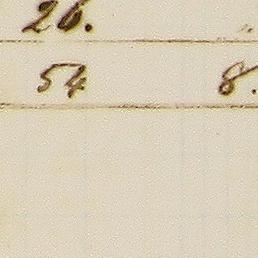 26.
54 8.